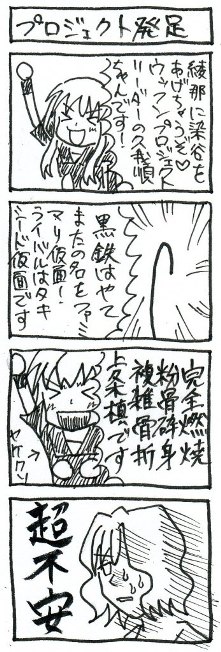 プロジェクト発足
綾那に染谷を
あげちゃうぞ♡
ウッフンプロジェクト
リーダーの久我順
ちゃんです！
黒鉄はやて
またの名をファ
マリ仮面！
ライバルはタキ
シード仮面です
完全燃焼
粉骨砕身
複雑骨折
上条槙です
ヤケクソ
超不安